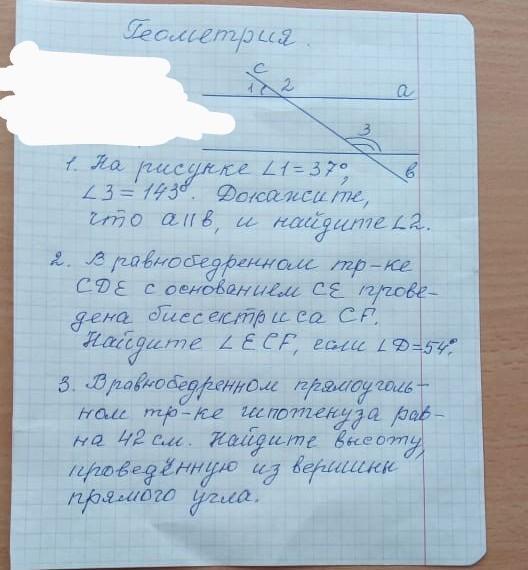 Геометрия.
с
1 2 а
3
в
1. На рисунке ∠1=37°,
∠3=143°. Докажите,
что а||в, и найдите ∠2.
2. В равнобедренном тр-ке
CDE с основанием CE прове-
дена биссектриса CF.
Найдите ∠ECF, если ∠D=54°.
3. В равнобедренном прямоуголь-
ном тр-ке гипотенуза рав-
на 42 см. Найдите высоту,
проведённую из вершины
прямого угла.